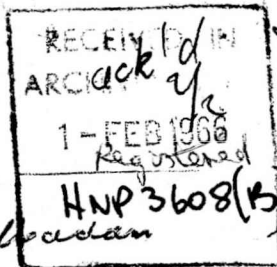 RECEIVED IN
ARCHIVES
ack'd
1 - FEB 1966
Registered
HNP 3608(B